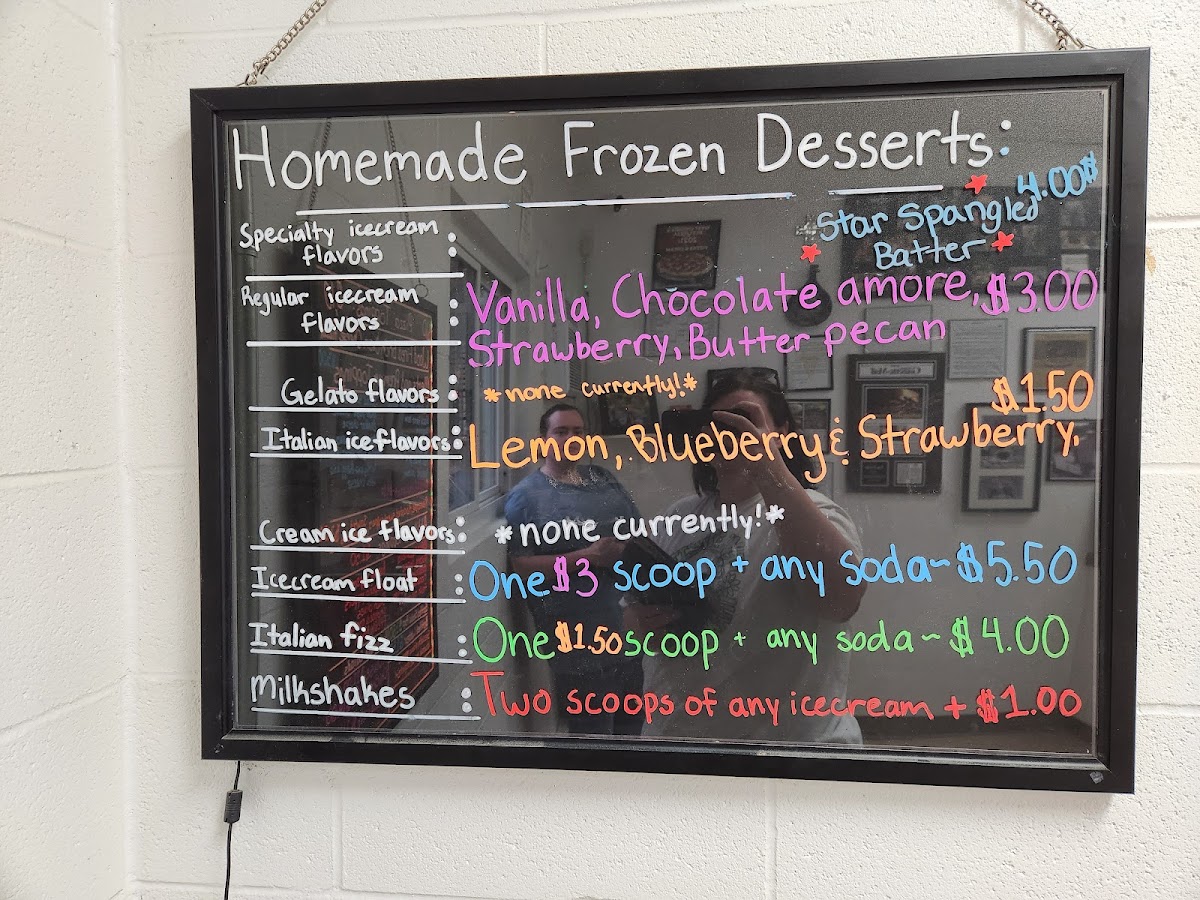 Homemade Frozen Desserts:
4.00$
Specialty icecream
flavors :
Star Spangled
Batter
Regular icecream
flavors :
Vanilla, Chocolate amore, $3.00
Strawberry, Butter pecan
Gelato flavors : *none currently!*
$1.50
Italian ice flavors: Lemon, Blueberry & Strawberry,
Cream ice flavors: *none currently!*
Icecream float : One $3 scoop + any soda ~ $5.50
Italian fizz : One $1.50 scoop + any soda ~ $4.00
Milkshakes : Two scoops of any icecream + $1.00